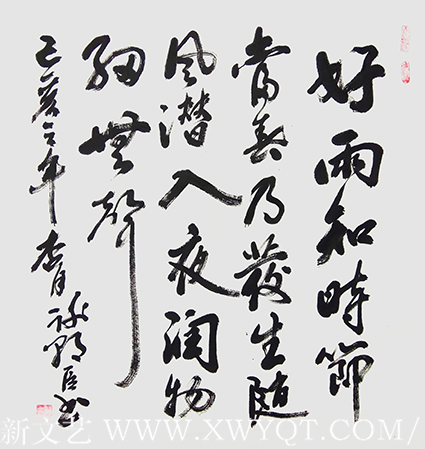 好雨知時節
當春乃發生隨
風潛入夜潤物
細無聲
己亥之年
新文艺 WWW.XWYQT.COM/